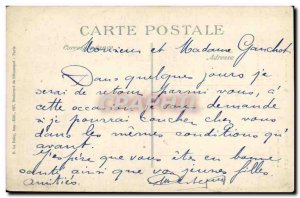 CARTE POSTALE
Correspondance
Adresse
Monsieur et Madame Ganchot
Dans quelques jours je
serai de retour parmi vous, à
cette occasion je vous demande
si je pourrai coucher chez vous
dans les mêmes conditions qu'
avant.
J'espère que vous êtes en bonne
santé ainsi que vos jeunes filles
Amitiés